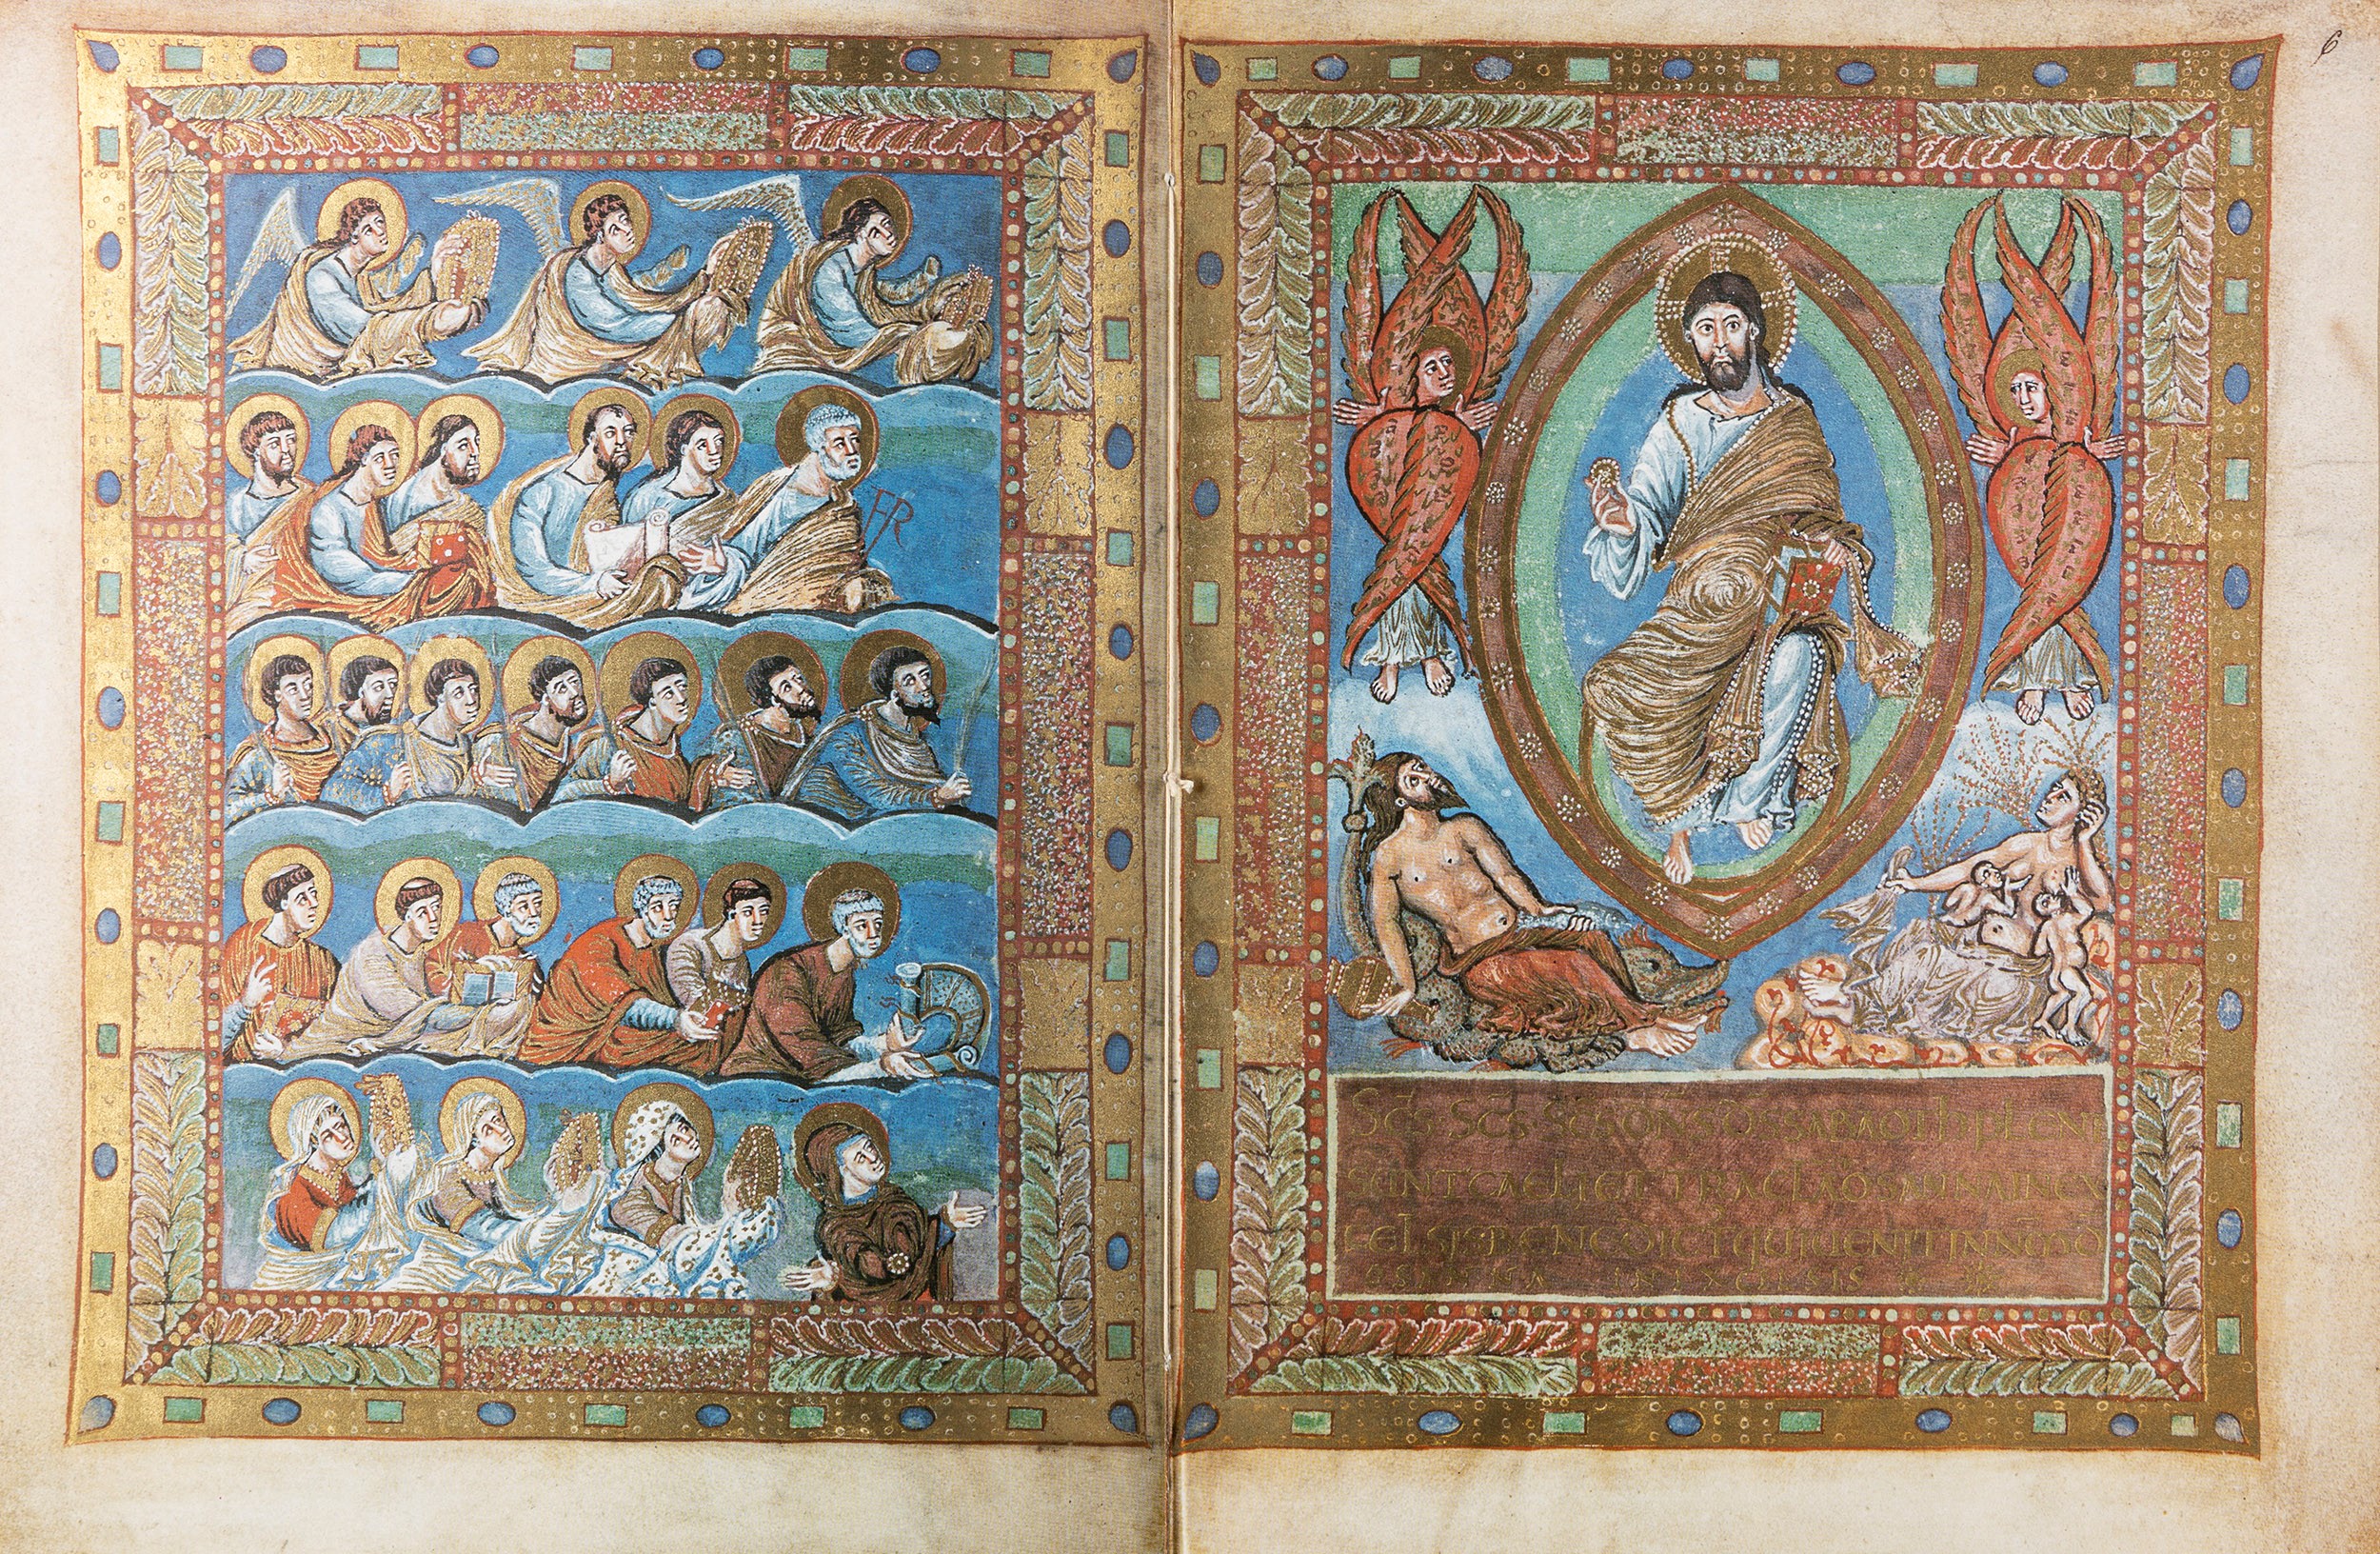 6
PR
SC̄S SC̄S SC̄S DN̄S D̄S SABAOTH PLENI
SUNT CAELI ET TRA GLA OSANNA IN EX
CELSIS BENEDICT QUI UENIT IN
OSANNA IN EXCELSIS